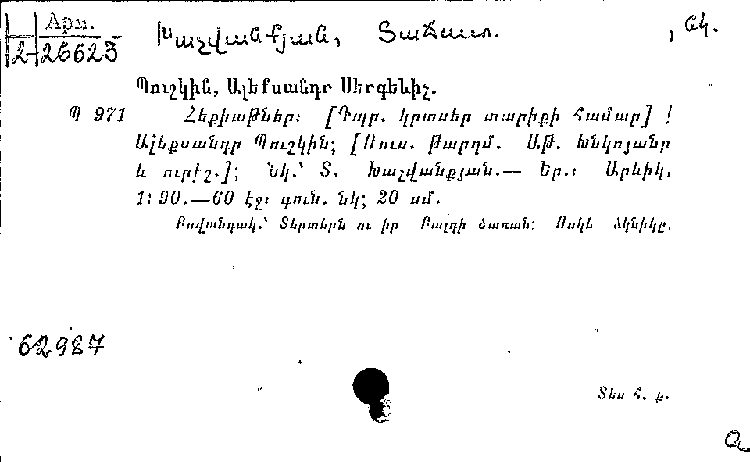 Արև.
2-26623
Խաչվանքյան, Տաճատ. , նկ.
Պուշկին, Ալեքսանդր Սերգեևիչ.
Պ 971 Հեքիաթներ: [Դպր. կրտսեր տարիքի համար] /
Ալեքսանդր Պուշկին; [Ռուս. թարգմ. Աթ. Խնկոյանը
և ուրիշ.]; Նկ.՝ Տ. Խաչվանքյան.— Եր.: Արևիկ,
1990.—60 էջ: գուն. նկ; 20 սմ.
Բովանդակ.՝ Տերտերն ու իր Բալդի ծառան: Ոսկե ձկնիկը.
62987
Տես Հ. ք.